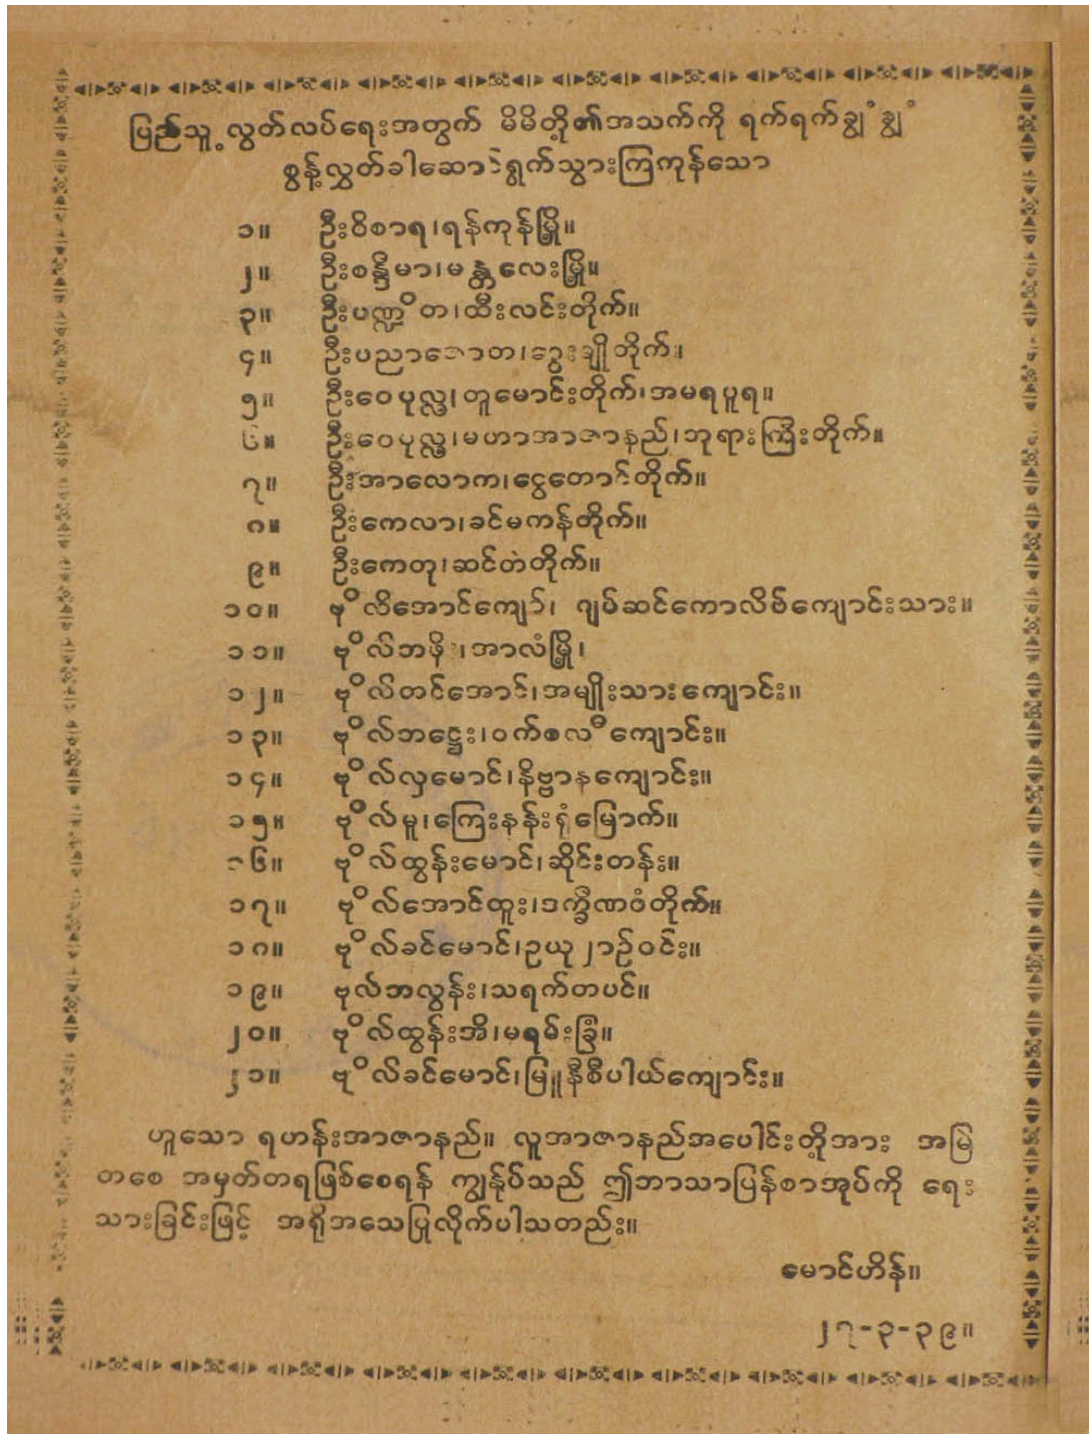 ပြည်သူ့လွတ်လပ်ရေးအတွက် မိမိတို့၏အသက်ကို ရက်ရက်ချွံချွံ
စွန့်လွှတ်ခါဆောင်ရွက်သွားကြကုန်သော
၁။ ဦးဝိစာရ၊ရန်ကုန်မြို့။
၂။ ဦးစန္ဒိမာ၊မန္တလေးမြို့။
၃။ ဦးပဏ္ဍိတ၊ထီးလင်းတိုက်။
၄။ ဦးပညာဇောတ၊ငွေးချိုတိုက်။
၅။ ဦးဝေပုလ္လ၊တူမောင်းတိုက်၊အမရပူရ။
၆။ ဦးဝေပုလ္လ၊မဟာအာဇာနည်၊ဘုရားကြီးတိုက်။
၇။ ဦးအာလောက၊ငွေတောင်တိုက်။
၈။ ဦးကေလာ၊ခင်မကန်တိုက်။
၉။ ဦးကေတု၊ဆင်တဲတိုက်။
၁၀။ ဗိုလ်အောင်ကျော်၊ ဂျပ်ဆင်ကောလိပ်ကျောင်းသား။
၁၁။ ဗိုလ်ဘဖိုး၊အာလံမြို့၊
၁၂။ ဗိုလ်တင်အောင်၊အမျိုးသားကျောင်း။
၁၃။ ဗိုလ်ဘဌွေး၊ဝက်စလီကျောင်း။
၁၄။ ဗိုလ်လှမောင်၊နိဗ္ဗာနကျောင်း။
၁၅။ ဗိုလ်မူ၊ကြေးနန်းရုံမြောက်။
၁၆။ ဗိုလ်ထွန်းမောင်၊ဆိုင်းတန်း။
၁၇။ ဗိုလ်အောင်ထူး၊ဒက္ခိဏဝံတိုက်။
၁၈။ ဗိုလ်ခင်မောင်၊ဥယျာဉ်ဝင်း။
၁၉။ ဗုလ်ဘလွန်း၊သရက်တပင်။
၂၀။ ဗိုလ်ထွန်းအိ၊မရမ်းခြံ။
၂၁။ ဗိုလ်ခင်မောင်၊မြူနီစီပါယ်ကျောင်း။
ဟူသော ရဟန်းအာဇာနည်။ လူအာဇာနည်အပေါင်းတို့အား အမြဲ
တစေ အမှတ်တရဖြစ်စေရန် ကျွန်ုပ်သည် ဤဘာသာပြန်စာအုပ်ကို ရေး
သားခြင်းဖြင့် အရိုအသေပြုလိုက်ပါသတည်း။
မောင်ဟိန်။
၂၇-၃-၃၉။